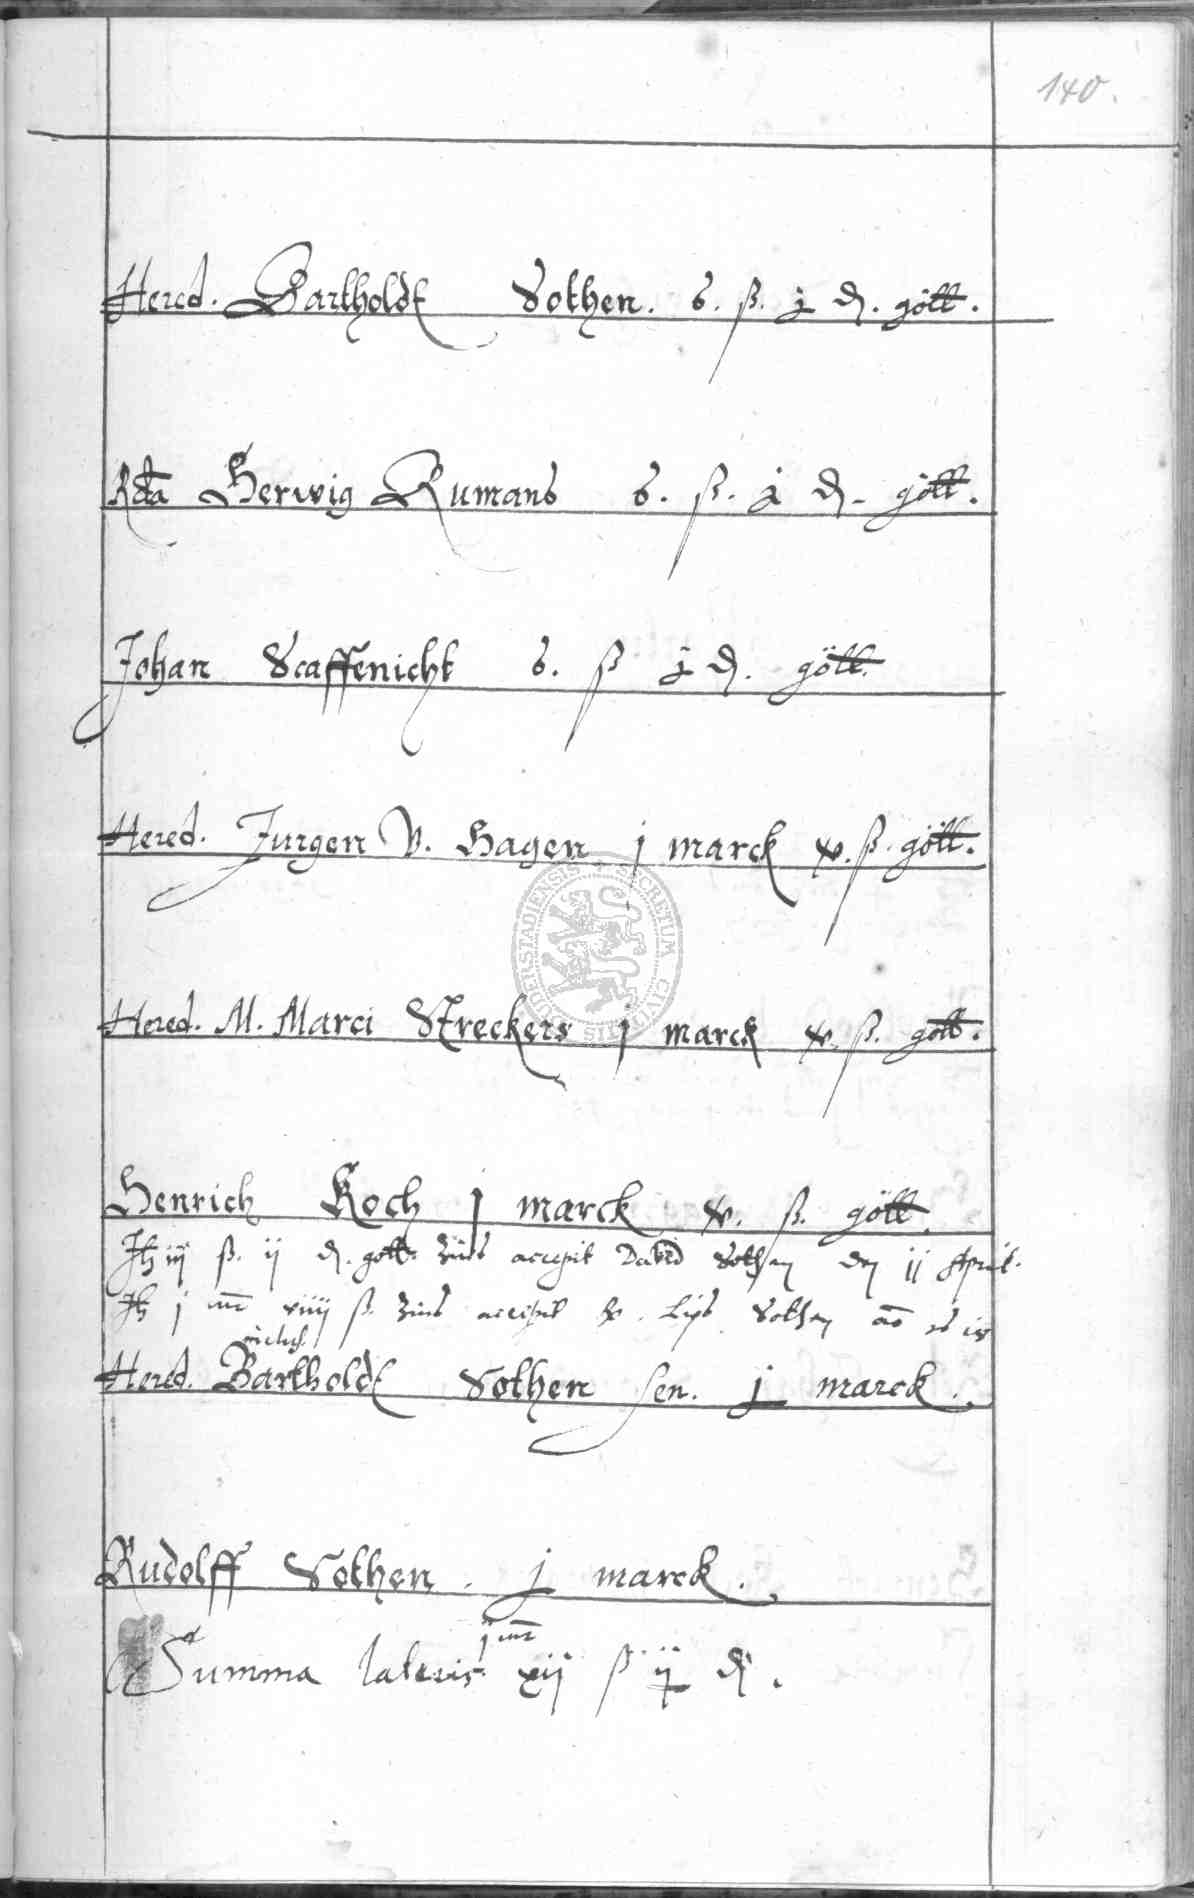 140.
Hered. Bartholdt Sothen. 6. ß. j ₰. gött.
Rda Herwig Rumans 6. ß. j ₰. gött.
Johan Scaffenicht 6. ß j ₰. gött.
Hered. Jurgen V. Hagen j marck x. ß. gött.
Hered. M. Marci Streckers j marck x. ß. gött.
Henrich Koch j marck x. ß. gött.
iij ß. ij ₰. gött. Zins accepit David Sothen den 11 April.
j mr xiiij ß. Zins accepit Sothen ao
Hered. Bartholdt Sothen sen. j marck.
Rudolff Sothen. j marck.
j mr
Summa lateris xij ß ij ₰.
SECRETUM CIVITATIS DUDERSTADIENSIS